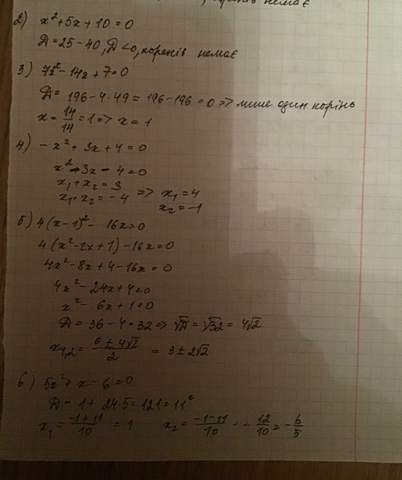 немає
2) x²+5x+10=0
D=25-40, D<0, коренів немає
3) 7x²-14x+7=0
D=196-4·49=196-196=0=> лише один корінь
x=14/14=1=>x=1
4) -x²+3x+4=0
x²-3x-4=0
x₁+x₂=3
x₁·x₂=-4 => x₁=4
x₂=-1
5) 4(x-1)²-16x=0
4(x²-2x+1)-16x=0
4x²-8x+4-16x=0
4x²-24x+4=0
x²-6x+1=0
D=36-4=32=>√D=√32=4√2
x₁,₂=(6±4√2)/2=3±2√2
6) 5x²+x-6=0
D=1+24·5=121=11²
x₁=(-1+11)/10=1 x₂=(-1-11)/10=-12/10=-6/5